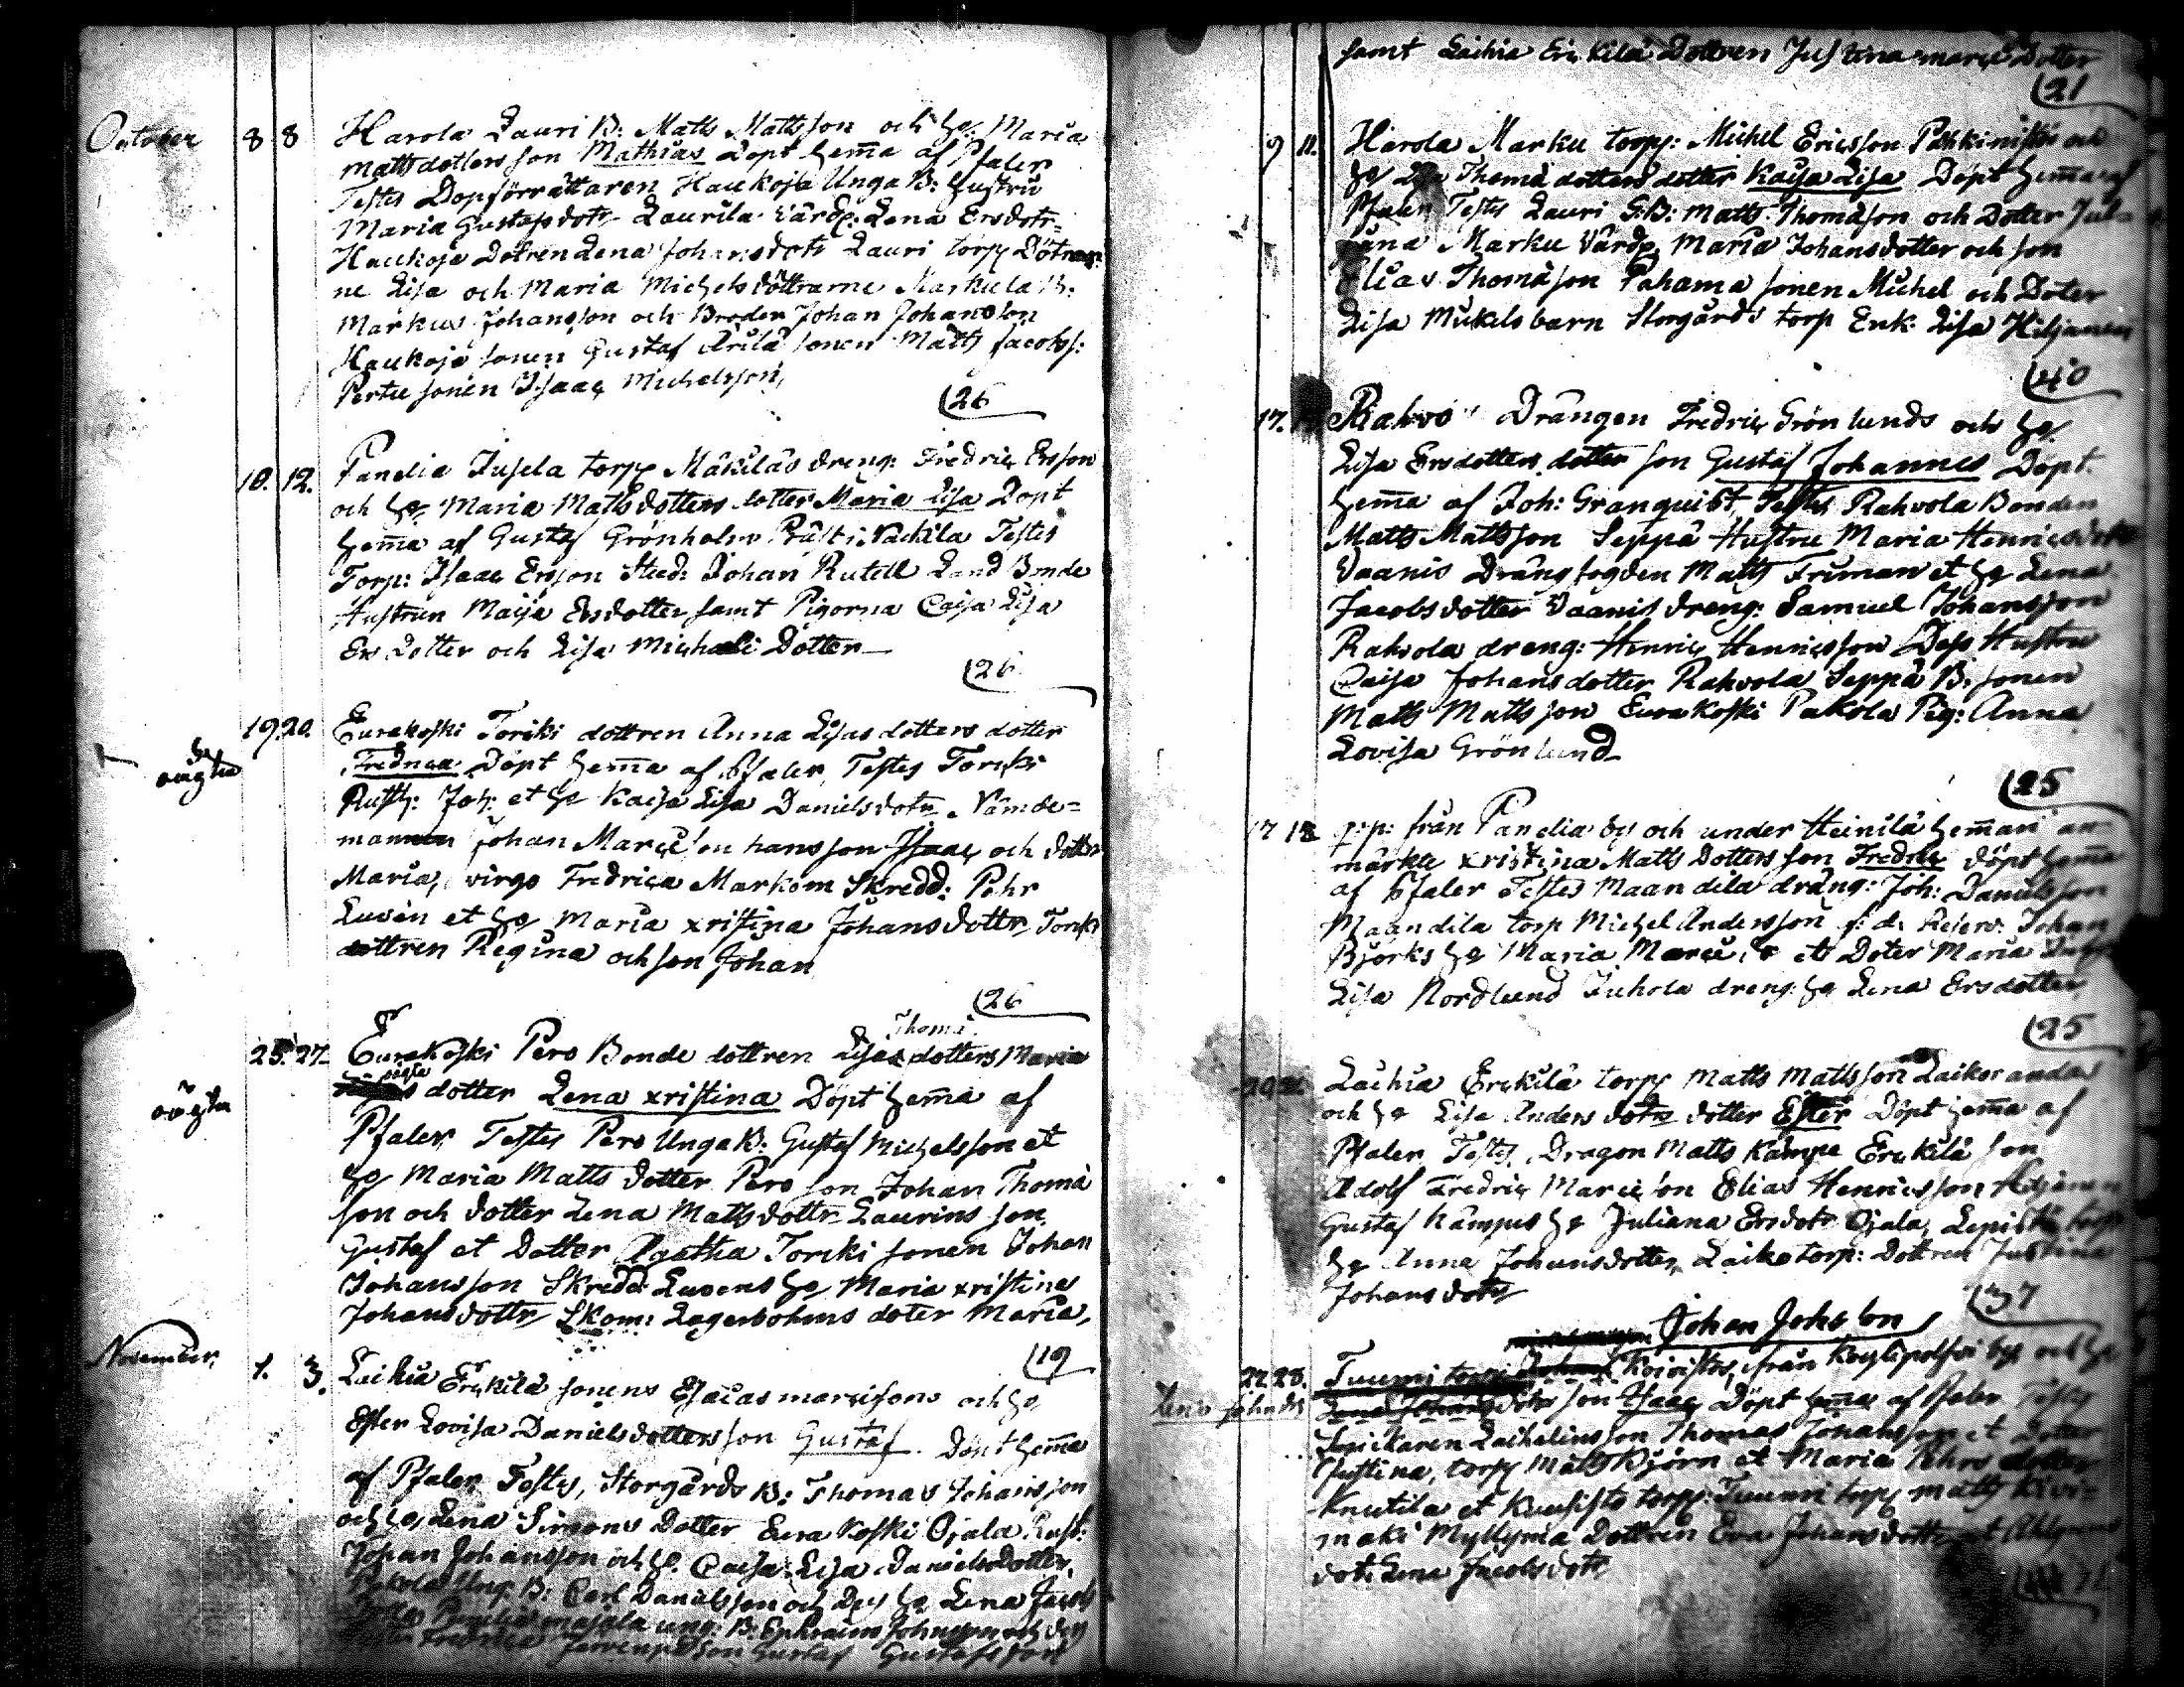 October 8 8 Harola Lauri B: Matts Mattsson och he: Maria
Mattsdotters son Mathias Döpt hema af Pfaler
Testes Dopförrättaren Haukoja Unga B: hustru
Maria Gustafsdotr Laurila Värdr. Lena Ersdotr
Haukoja Dotren Lena Johansdotr Lauri torp Dötrar
ne Lisa och Maria Michelsdöttrarne Markula B:
Markus Johansson och Broder Johan Johansson
Haukoja sonen Gustaf Ärilä sonen Matts Jacobs:
Perttu sonen Isaac Michelsson,
(26
10. 12. Panelia Jusela torp Mäkiläs dreng: Fredric Ersson
och he Maria Mattsdotters dotter Maria Lisa Döpt
hema af Gustaf Grönholm Testes
Torp: Isaac Ersson Stud: Johan Rutell Land Bonde
Hustrun Maija Ersdotter samt Pigorna Caisa Lisa
Ers Dotter och Lisa Michaeli Dotter
(26
19 20. Eurakoski Toriki dottren Anna Lisas dotters dotter
oägta
Fredrica Döpt hema af Pfaler, Testes Toriki
Rusth: Joh: et he Kaisa Lisa Danielsdotr Nämde=
mannen Johan Marcis son hansson Isaac och dotter
Maria, virgo Fredrica Markom Skredd: Pehr
Luven et he Maria xristina Johansdottr, Toriki
dottren Regina och son Johan
(26
Thoma
25. 27. Eurakoski Pero Bonde dottren Lisas dotters Maria
oägta
oägta dotter Lena xristina Döpt hema af
Pfaler Testes Pero Unga B: Gustaf Michelsson et
he Maria Matts dotter Pero son Johan Thoma
son och dotter Lena Mattsdottr Laurins son
Gustaf et Dotter Agatha Toriki sonen Johan
Johansson Skredd: Luvens he Maria xristina
Johansdottr Skom: Lagerbohms doter Maria,
(19
November 1. 3. Laihia Erckilä sonens Esaias marcisons och he,
Ester Lovisa Danielsdotters son Gustaf. Döpt hema
af Pfaler Testes, Storgårds B: Thomas Johansson
och he, Lena Simons Dotter Eura Koski Ojala Rust:
Johan Johansson och he. Caisa Lisa Danielsdotter,
Pakola Ung: B: Carl Danielsson och Des he Lena Jacob
dotter Panelia Majala ung: B: Ephraim Johansson och des
Fredrica son Gustaf Gustafsson
samt Laihia Erckilä Dottren Justina marcis Dotter
(21
9 11. Harola Marku torp: Michel Ericsson och
he Lisa Thoma dotters dotter Kaisa Lisa Döpt hema af
Pfaler Testes Lauri G:B: Matts Thomason och Dotter Jul=
iana Marku Värdr. Maria Johansdotter och son
Elias Thomason Pahama sonen Michel och Doter
Lisa Mickels barn Storgårds torp Enk: Lisa Hiljanen
(40
17. Rahvo Drängen Fredric Grönlunds och he
Lisa Ersdotters dotter son Gustaf Johannes Döpt
hema af Joh: Granquist, Testes Rahvola Bonden
Matts Mattsson Seppä Hustru Maria Henricsdotr
Vaanis Drängfogden Matts Friman et he Lena
Jacobsdotter Vaanis dreng: Samuel Johansson
Rahvola dreng: Henric Henricsson Des Hustru
Caisa Johansdotter Rahvola Seppä B: sonen
Matts Mattsson Eurakoski Pakola Pig: Anna
Lovisa Grönlund
(25
17 18 från Panelia by och under Heinilä heman an
märkte xristina Matts Dotters son Fredric döpt hema
af Pfaler Testes Maandila dräng: Joh: Danielsson
Maandila torp Michel Andersson f: d: Reserv: Johan
Björks he Maria Marcis, et Doter Maria
Lisa Nordlund Juhola dreng he Lena Ersdotter
(25
20 Laihia Erckilä torp Matts Mattsson Laikoranda
och he Lisa Anders dotrs dotter Ester Döpt hema af
Pfaler Testes, Dragon Matts Kämpe Erckilä son
Adolf Fredric Marcis son Elias Henricsson Hiljanen
Gustaf Kämpes he Juliana Ersdotr Ojala, Lepistö torp
he Anna Johansdotter, Laiko torp: Dottren Justina
Johansdotr
(37
Johan Johsson
22 23. Tuumi torp Koivisto, frånKöyliopolfvi by och he
Lena Johansd: dotr son Isaac Döpt hema af Pfaler Testes
Laihelins son Thomas Johansson et Dotter
Justina, torp Matts Björn et Maria Pehrs dotter
Knutila et Kuusisto torp: Tuumi torp matts Kivi=
mäki Myllymä Dottren Eva Johansdotter et
dotr Lena Jacobsdotr